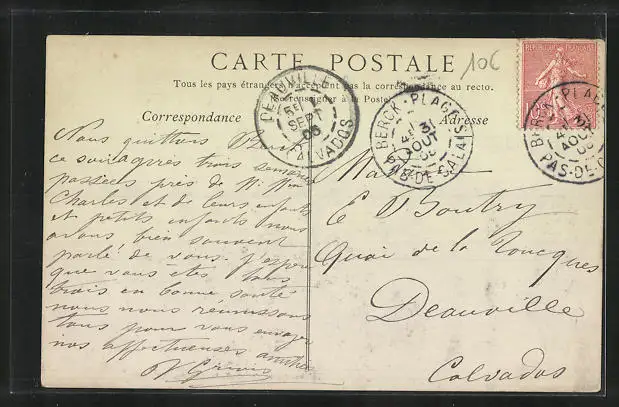 CARTE POSTALE
10€
Tous les pays étrangers n'acceptent pas la correspondance au recto.
Se renseigner à la Poste
Correspondance
Adresse
DEAUVILLE
SEPT
05
CALVADOS
BERCK-PLAGE
31
AOUT
05
PAS-DE-CALAIS
REPUBLIQUE FRANÇAISE
10
BERCK-PLAGE
AOUT
PAS-DE-C
Nous quittons
ce soir après trois semaines
passées près de M. Mme
Charles et de leurs enfants
et petits enfants nous
avons bien souvent
parlé de vous. J'espère
que vous êtes tous
trois en bonne santé
nous nous réunissons
tous pour vous envoyer
nos affectueuses amitiés
E Boutry
Quai de la Toucques
Deauville
Calvados